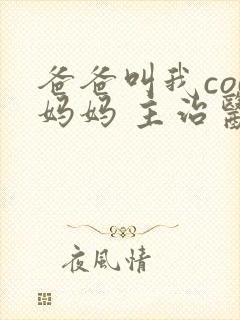 爸爸叫我co
妈妈 主治醫
夜風情